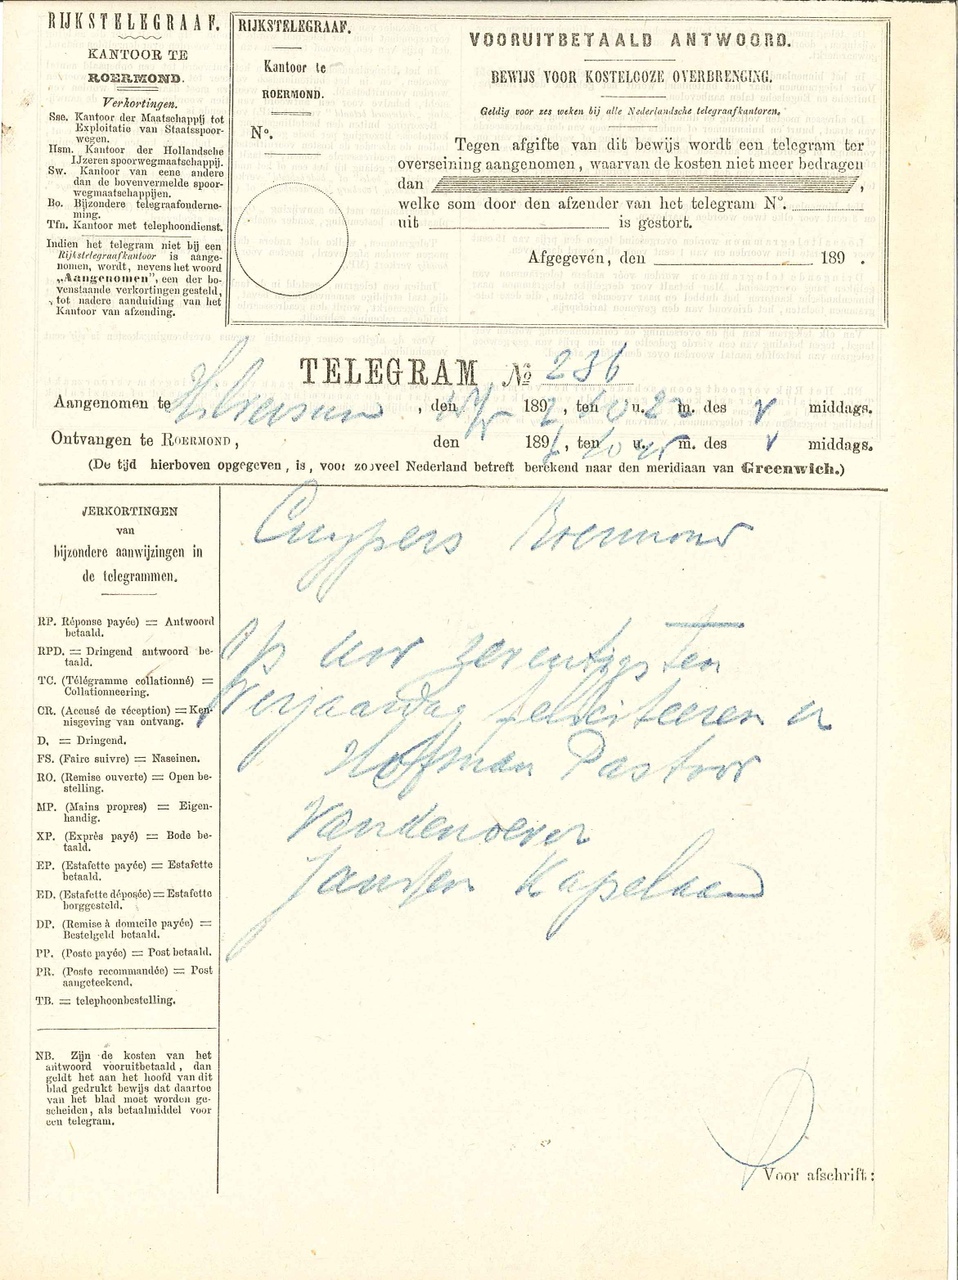 RIJKSTELEGRAAF.
KANTOOR TE
ROERMOND.
Verkortingen.
Sse. Kantoor der Maatschappij tot
Exploitatie van Staatsspoor-
wegen.
Hsm. Kantoor der Hollandsche
IJzeren spoorwegmaatschappij.
Sw. Kantoor van eene andere
dan de bovenvermelde spoor-
wegmaatschappijen.
Bo. Bijzondere telegraafonderne-
ming.
Tfn. Kantoor met telephoondienst.
Indien het telegram niet bij een
Rijkstelegraafkantoor is aange-
nomen, wordt, nevens het woord
„Aangenomen”, een der bo-
venstaande verkortingen gesteld,
tot nadere aanduiding van het
Kantoor van afzending.
RIJKSTELEGRAAF.
Kantoor te
ROERMOND.
No.
VOORUITBETAALD ANTWOORD.
BEWIJS VOOR KOSTELOOZE OVERBRENGING.
Geldig voor zes weken bij alle Nederlandsche telegraafkantoren.
Tegen afgifte van dit bewijs wordt een telegram ter
overseining aangenomen, waarvan de kosten niet meer bedragen
dan ,
welke som door den afzender van het telegram No.
uit is gestort.
Afgegeven, den 189 .
TELEGRAM No 236
Aangenomen te Hilversum , den 189 , ten u. m. des v middags.
Ontvangen te ROERMOND, den 189 , ten u. m. des v middags.
(De tijd hierboven opgegeven, is, voor zooveel Nederland betreft berekend naar den meridiaan van Greenwich.)
VERKORTINGEN
van
bijzondere aanwijzingen in
de telegrammen.
RP. Réponse payée) = Antwoord
betaald.
RPD. = Dringend antwoord be-
taald.
TC. (Télégramme collationné) =
Collationneering.
CR. (Accusé de réception) = Ken-
nisgeving van ontvang.
D. = Dringend.
FS. (Faire suivre) = Naseinen.
RO. (Remise ouverte) = Open be-
stelling.
MP. (Mains propres) = Eigen-
handig.
XP. (Exprès payé) = Bode be-
taald.
EP. (Estafette payée) = Estafette
betaald.
ED. (Estafette déposée) = Estafette
borggesteld.
DP. (Remise à domicile payée) =
Bestelgeld betaald.
PP. (Poste payée) = Post betaald.
PR. (Poste recommandée) = Post
aangeteekend.
TB. = telephoonbestelling.
NB. Zijn de kosten van het
antwoord vooruitbetaald, dan
geldt het aan het hoofd van dit
blad gedrukt bewijs dat daartoe
van het blad moet worden ge-
scheiden, als betaalmiddel voor
een telegram.
Cuypers Roermond
Op uw zeventigsten
Verjaardag feliciteeren u
Hoffman Pastoor
Vandenoever
Jansen Kapelaan
Voor afschrift: